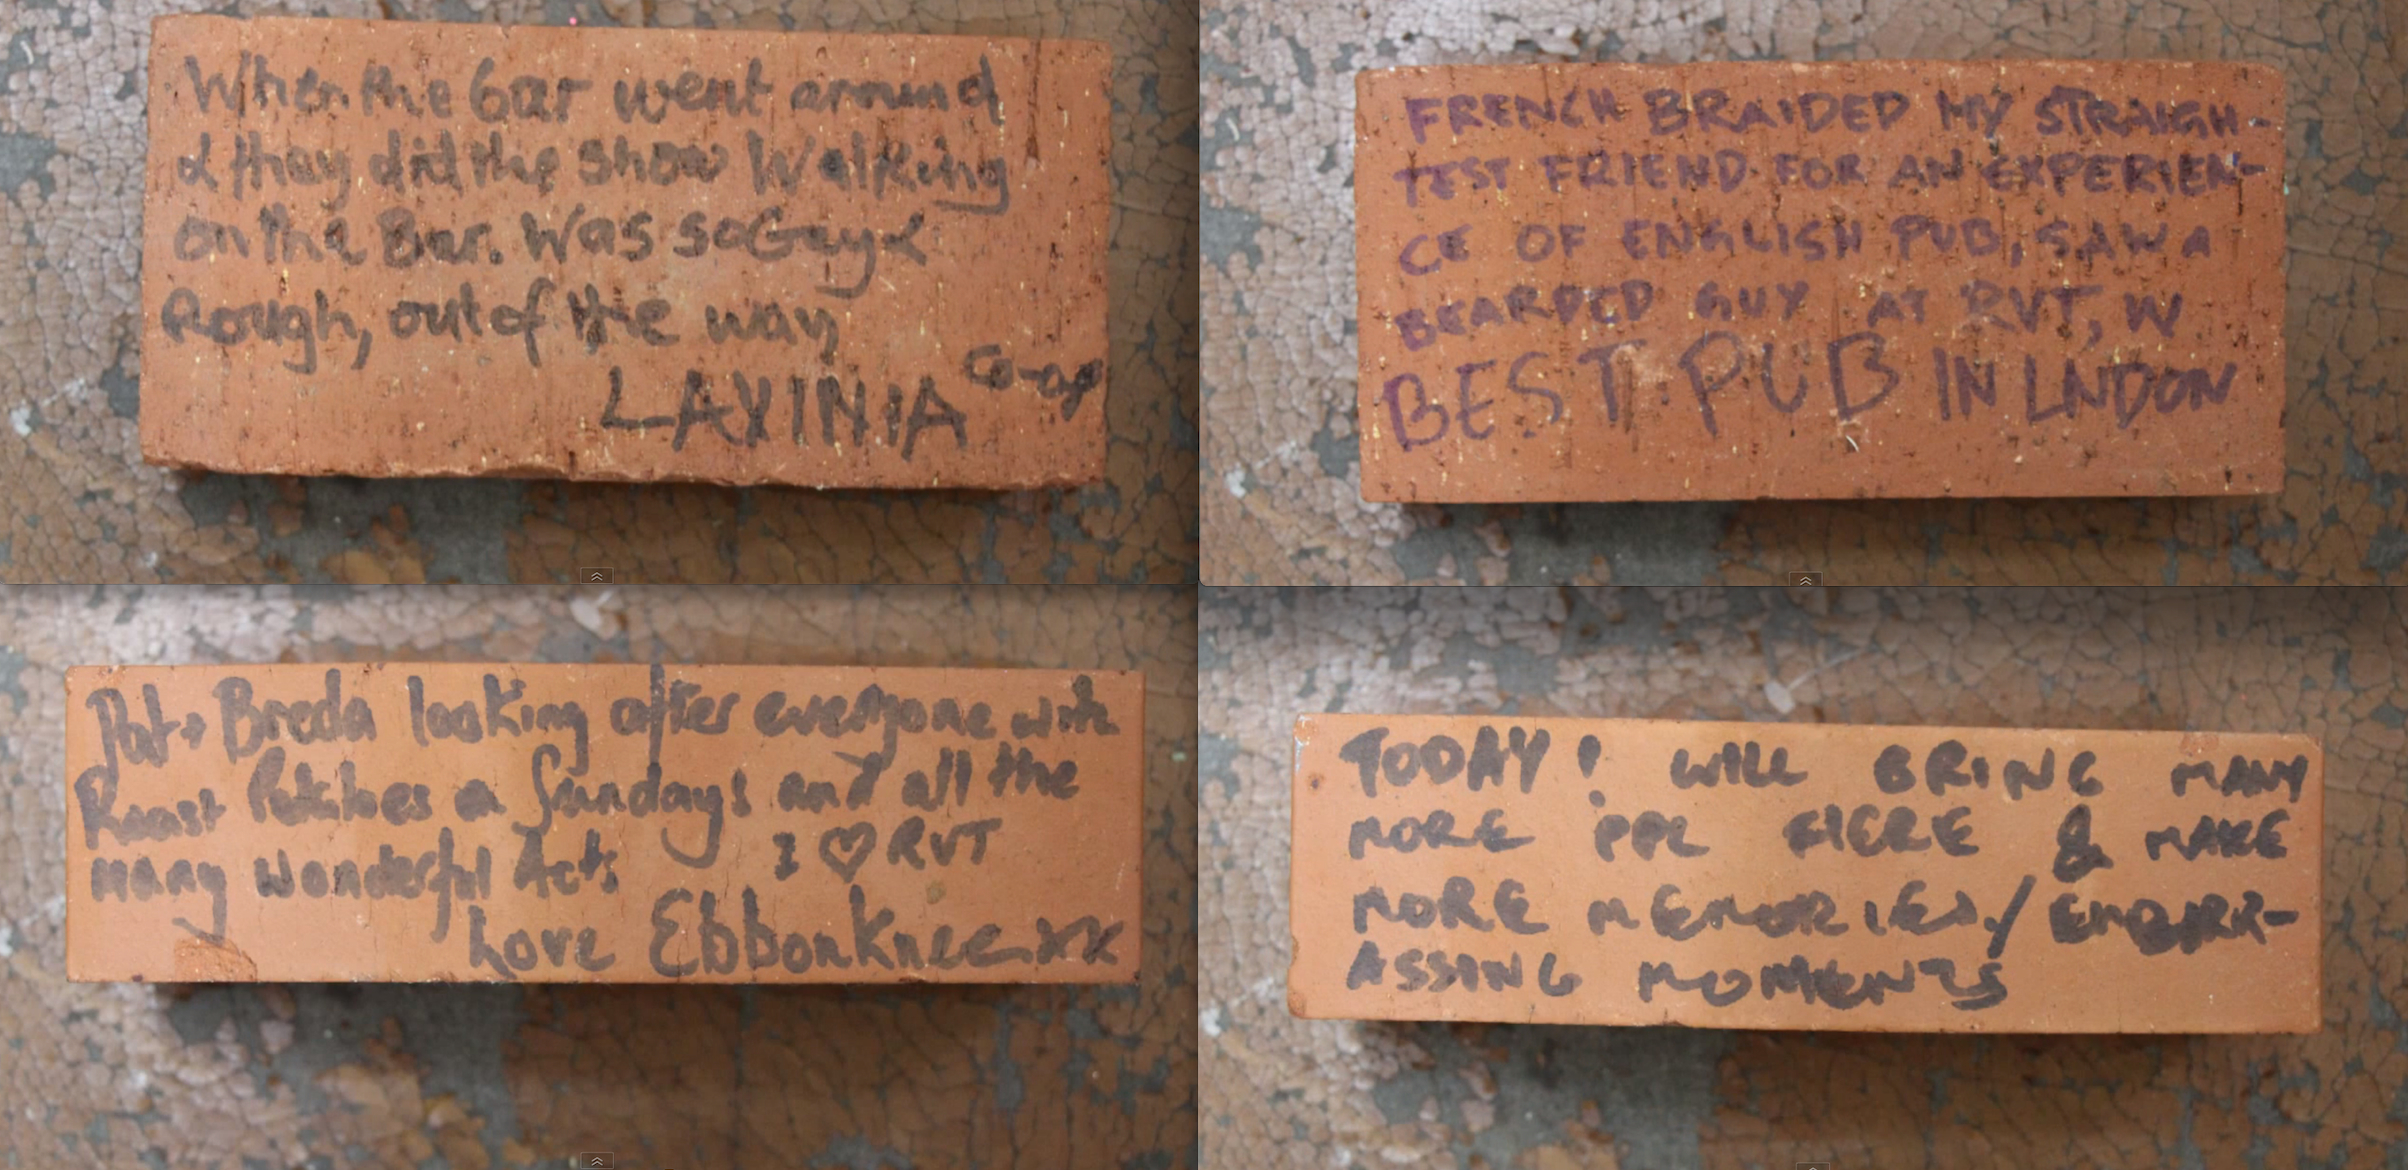 When the bar went around
& they did the show Walking
on the Bar. Was so Gay &
Rough, out of the way
LAVINIA Co-op
FRENCH BRAIDED MY STRAIGH-
TEST FRIEND FOR AN EXPERIEN-
CE OF ENGLISH PUB, SAW A
BEARDED GUY AT RVT, W
BEST PUB IN LNDON
Pat + Breda looking after everyone with
Roast Potatoes a Sundays and all the
many Wonderful Acts I ♡ RVT
Love Ebbonknee xx
TODAY! WILL BRING MANY
MORE PPL HERE & MAKE
MORE MEMORIES / EMBARR-
ASSING MOMENTS